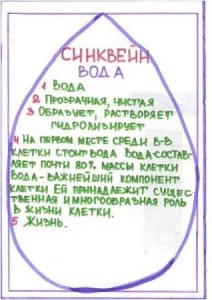 СИНКВЕЙН
ВОДА
1 ВОДА
2 ПРОЗРАЧНАЯ, ЧИСТАЯ
3 ОБРАЗУЕТ, РАСТВОРЯЕТ
ГИДРОЛИЗИРУЕТ
4 НА ПЕРВОМ МЕСТЕ СРЕДИ В-В
КЛЕТКИ СТОИТ ВОДА. ВОДА-СОСТАВ-
ЛЯЕТ ПОЧТИ 80% МАССЫ КЛЕТКИ
ВОДА-ВАЖНЕЙШИЙ КОМПОНЕНТ
КЛЕТКИ ЕЙ ПРИНАДЛЕЖИТ СУЩЕС-
ТВЕННАЯ И МНОГООБРАЗНАЯ РОЛЬ
В ЖИЗНИ КЛЕТКИ.
5 ЖИЗНЬ.